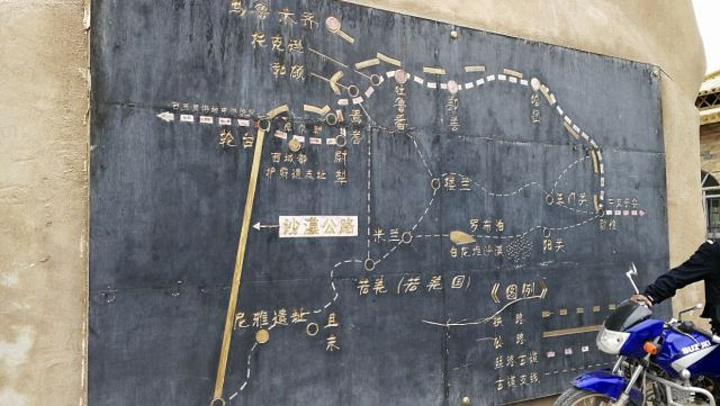 乌鲁木齐
托克逊
鄯善
哈密
吐鲁番
轮台
尉犁
西域都
护府遗址
楼兰
玉门关
敦煌
阳关
沙漠公路
米兰
罗布泊
白龙堆沙漠
若羌（若羌国）
尼雅遗址
且末
《图例》
铁路
公路
丝路古道
古道支线
SUZUKI